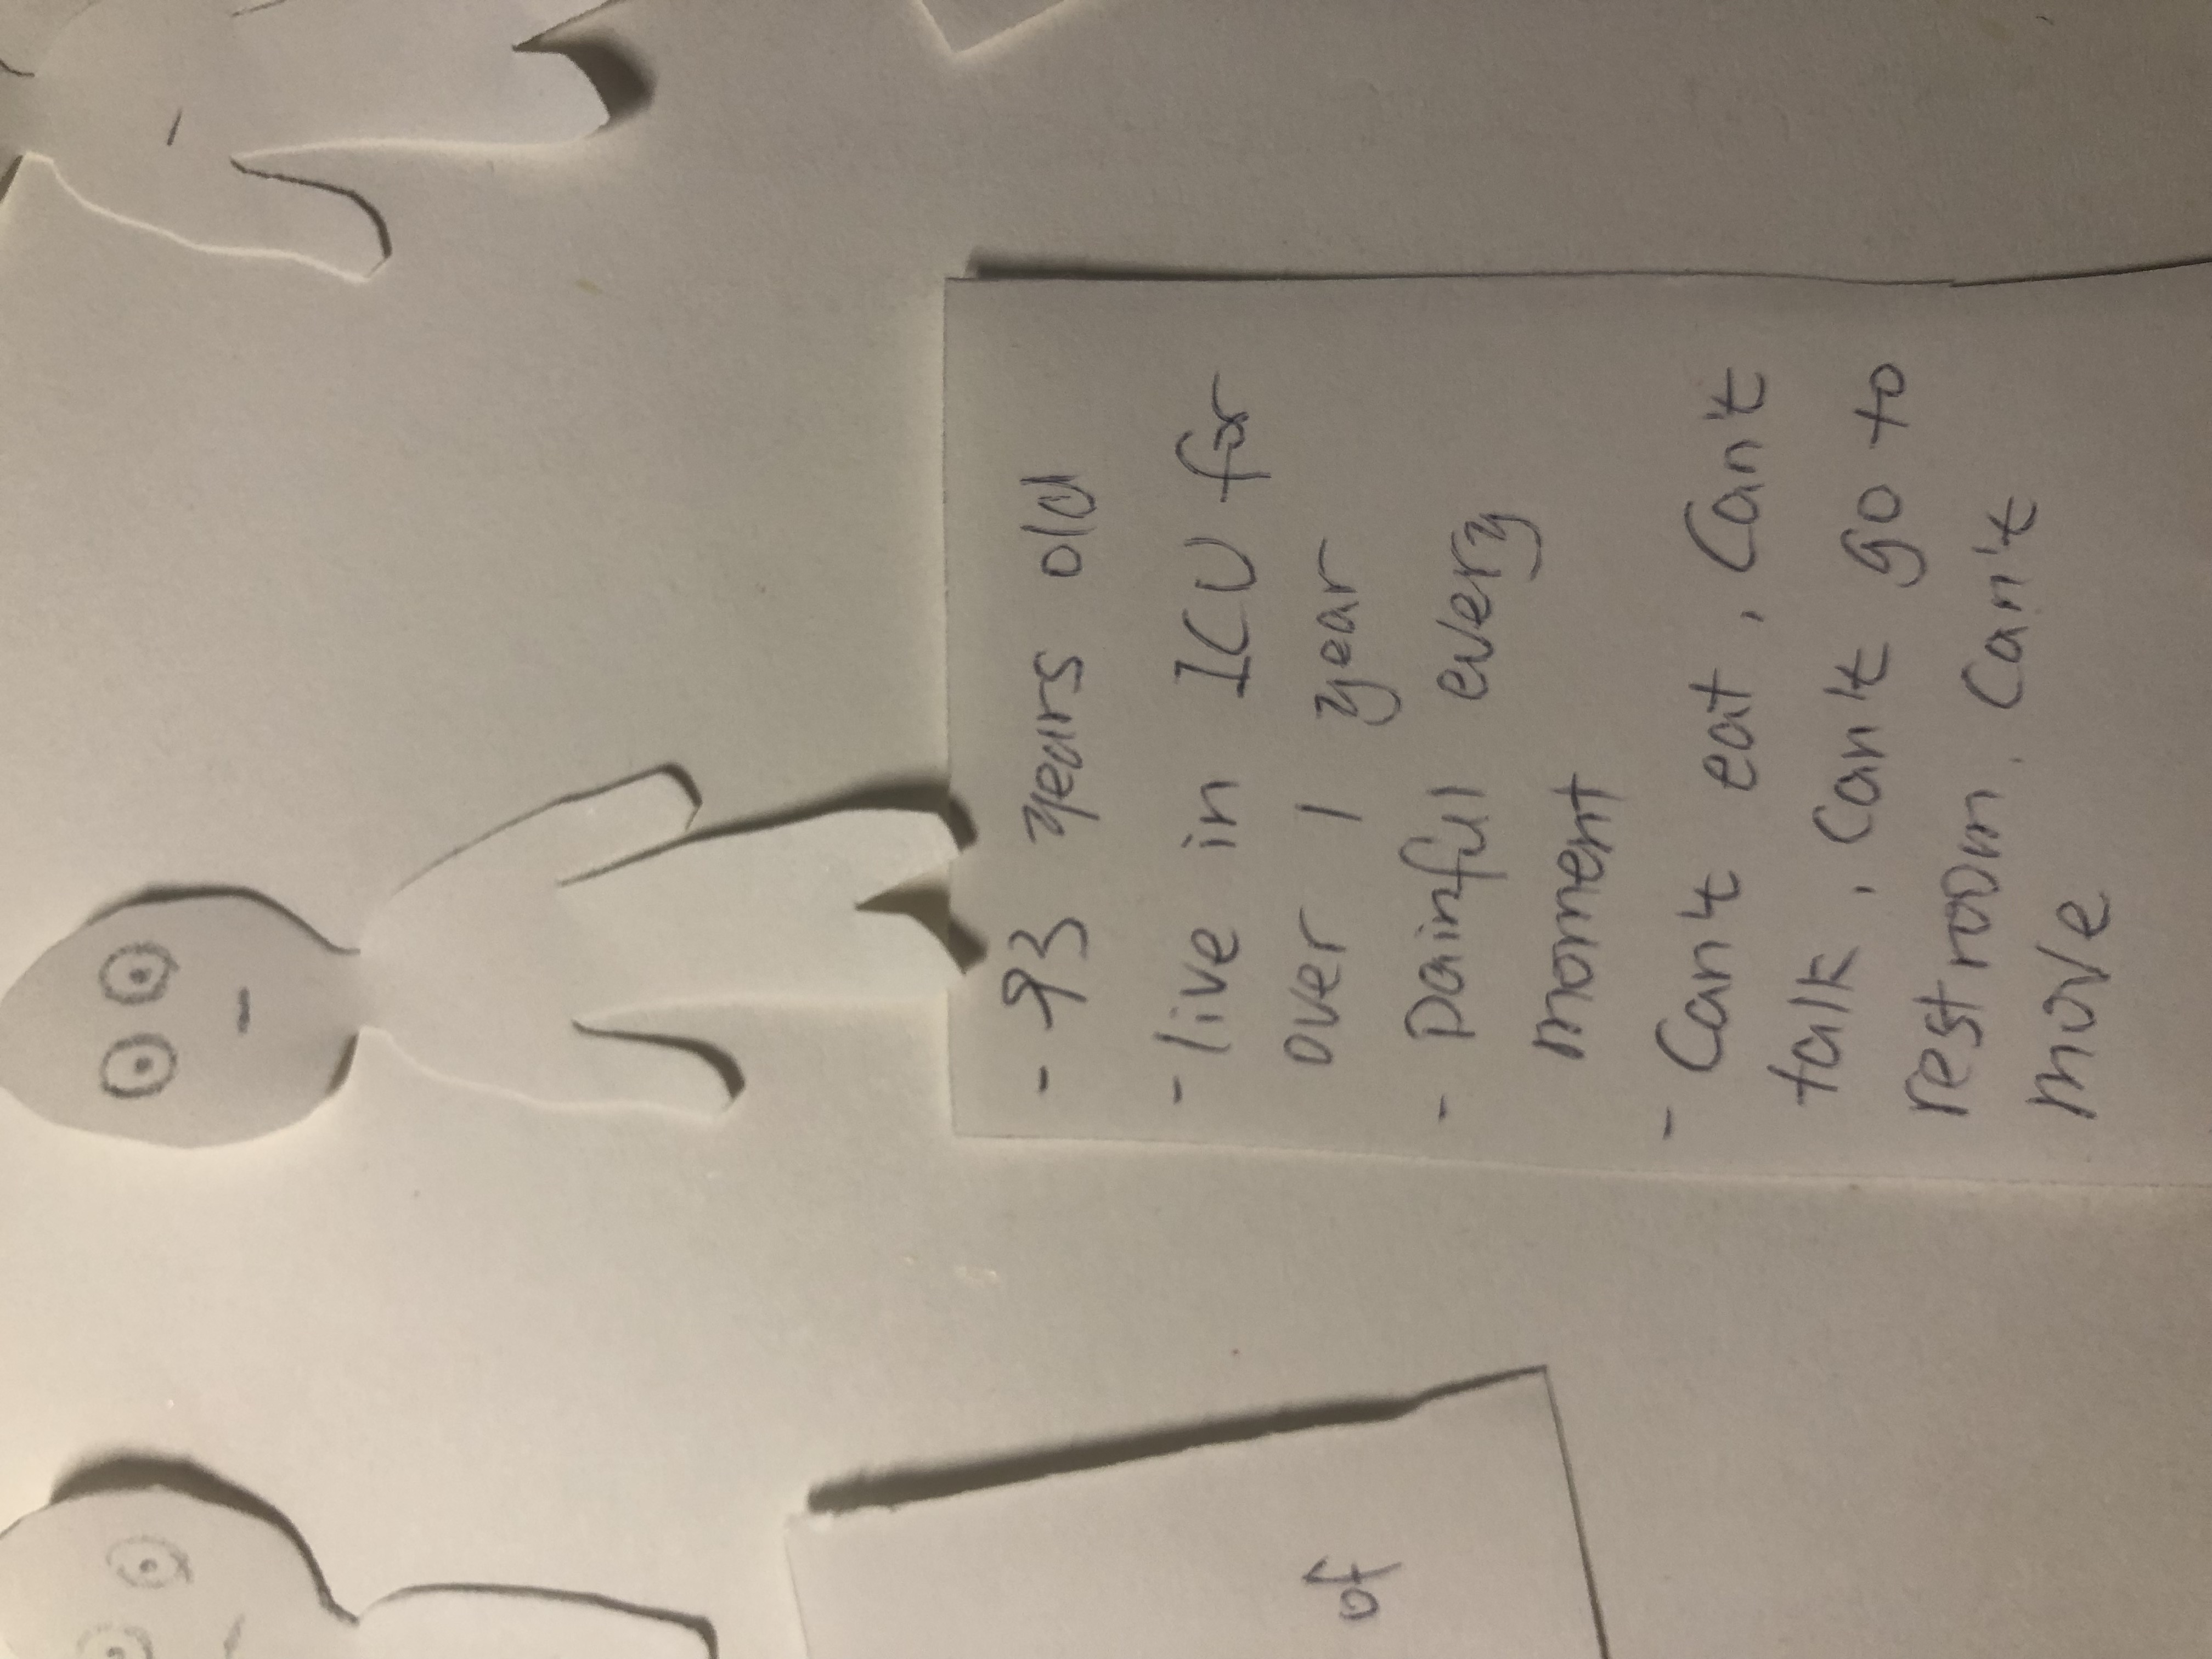 - 93 years old
- live in ICU for
over 1 year
- Painful every
moment
- Can't eat, Can't
talk, Can't go to
restroom. Can't
move
of